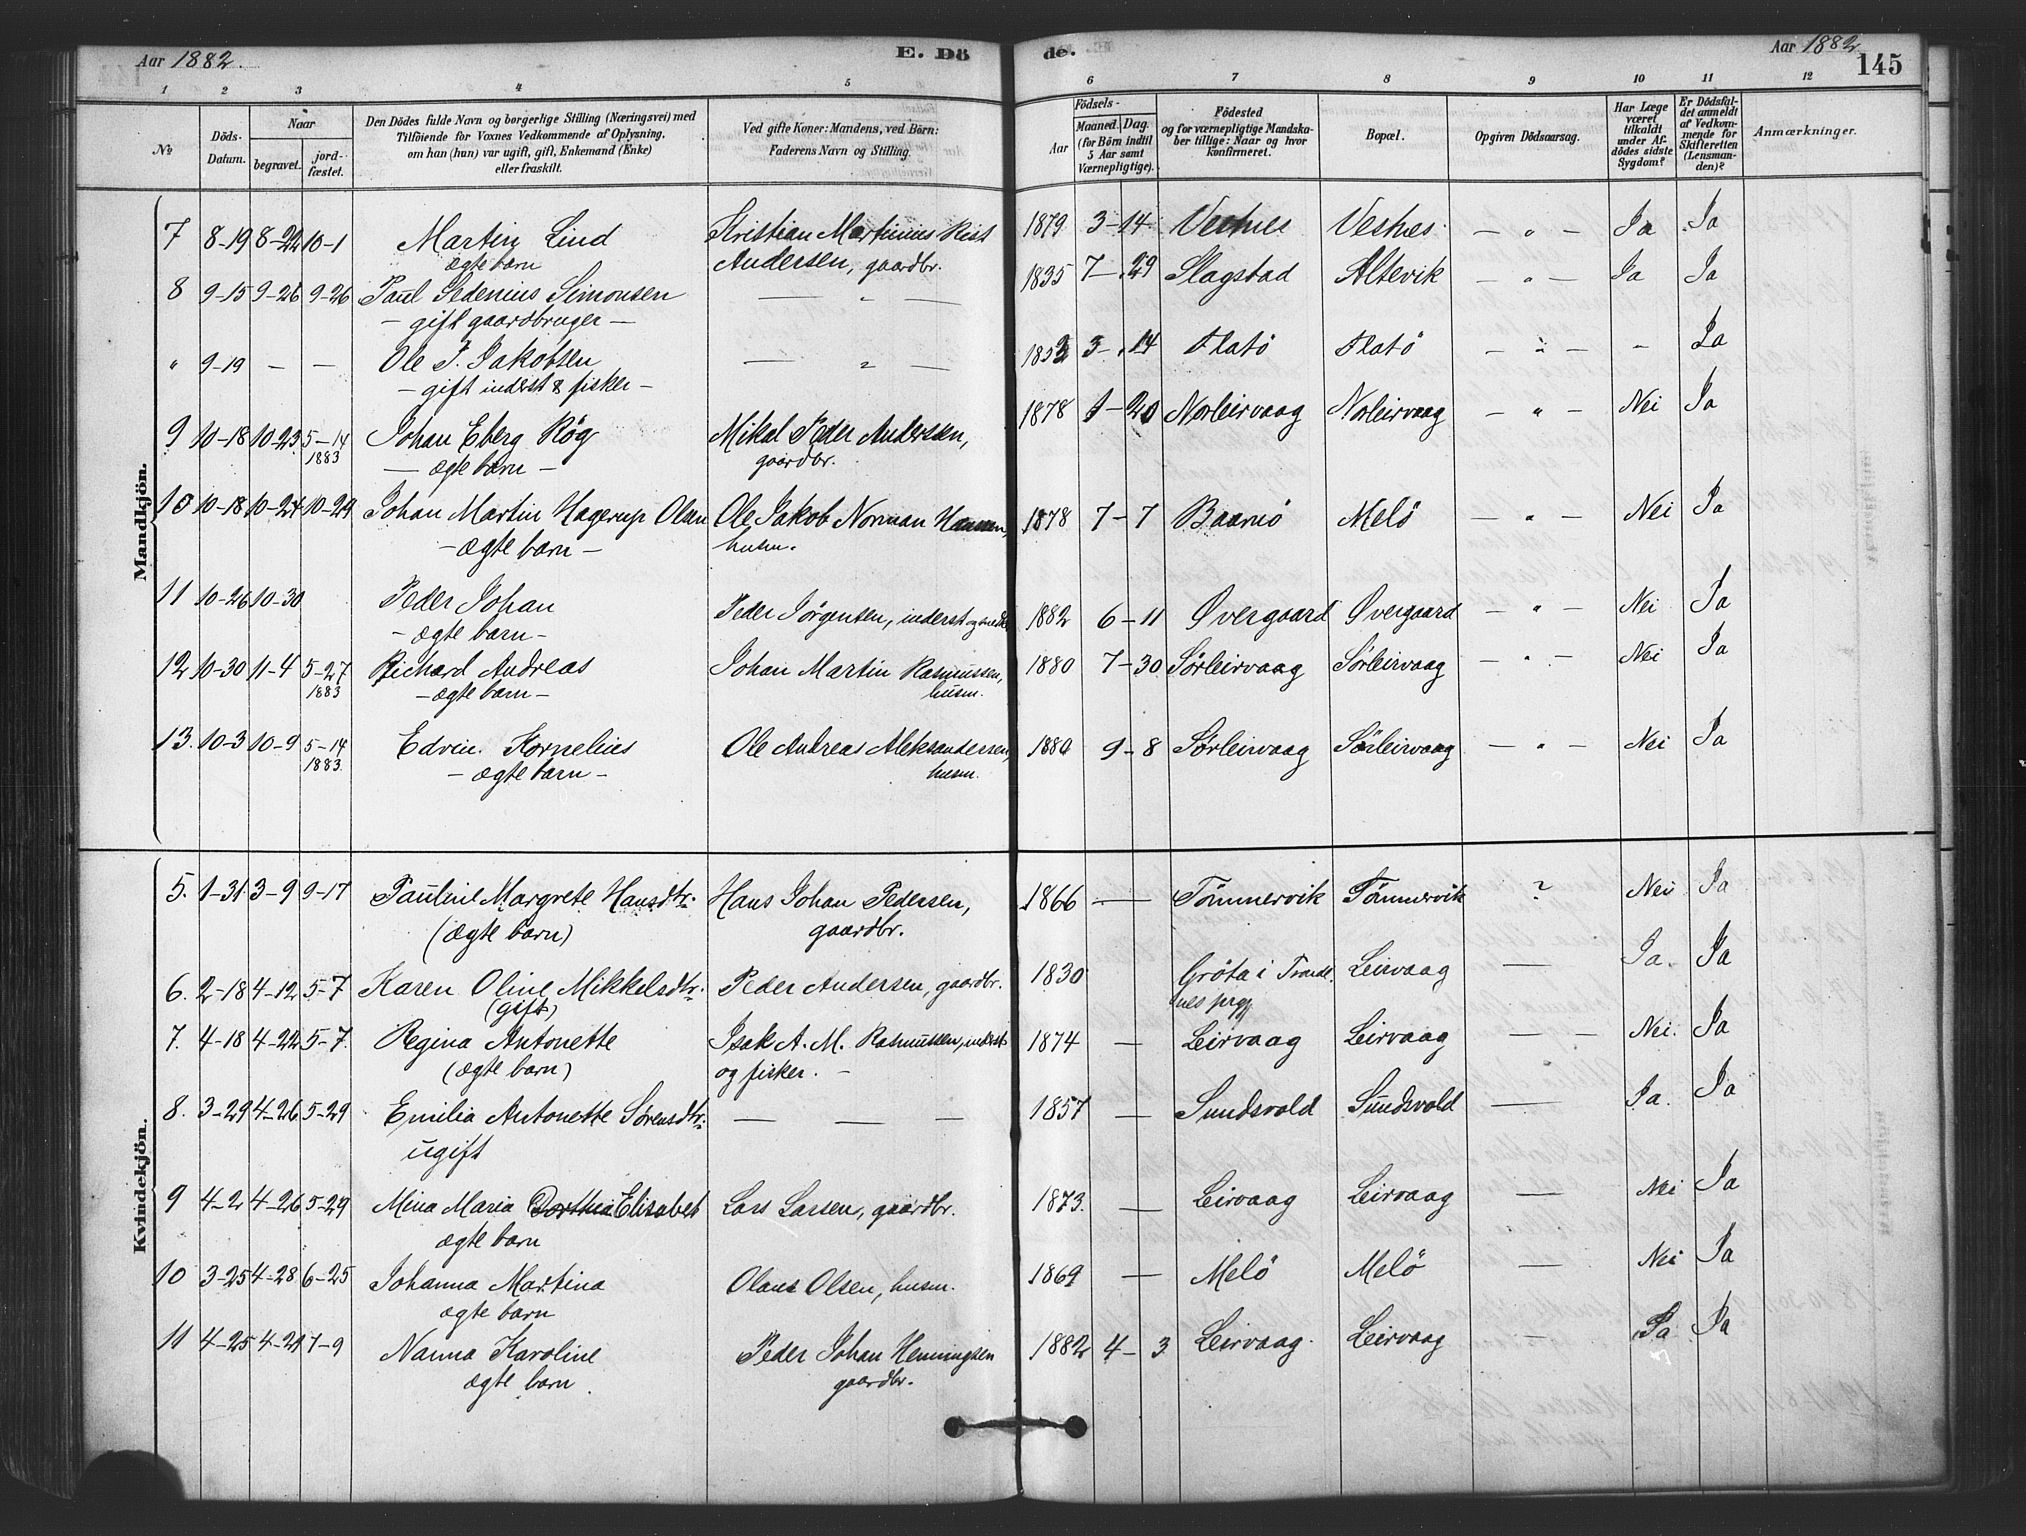 Aar 1882. E. Dö de. Aar 1882 145
1 2 3 4 5 6 7 8 9 10 11 12
№ Döds-Datum. Naar begravet. jord-fæstet. Den Dödes fulde Navn og borgerlige Stilling (Næringsvei) med Tilföiende for Voxnes Vedkommende af Oplysning, om han (hun) var ugift, gift, Enkemand (Enke) eller fraskilt. Ved gifte Koner: Mandens, ved Börn: Faderens Navn og Stilling Födsels- Aar Maaned. Dag. (for Börn indtil 5 Aar samt Værnepligtige). Födested og for værnepligtige Mandskaber tillige: Naar og hvor konfirmeret. Bopæl. Opgiven Dödsaarsag. Har Læge været tilkaldt under Afdödes sidste Sygdom? Er Dödsfaldet anmeldt af Vedkommende for Skifteretten (Lensmanden)? Anmærkninger.
Mandkjön.
7 8-19 8-22 10-1 Martin Lind Kristian Martinius Rist 1879 3-14 Vesnes Vesnes - " - Ja Ja
ægte barn Andersen, gaardbr.
8 9-15 9-26 9-26 Paul Pedenius Simonsen — " — 1835 7-29 Slagstad Altevik - " - Ja Ja
- gift gaardbruger -
" 9-19 - - Ole P. Jakobsen — " — 1853 3-14 Flatö Flatö - " - - Ja
- gift inderst & fisker -
9 10-18 10-23 5-14 1883 Johan Eberg Røg Mikal Peder Andersen, 1878 1-20 Norleirvaag Norleirvaag - " - Nei Ja
- ægte barn - gaardbr.
10 10-18 10-24 10-29 Johan Martin Hagerup Olsen Ole Jakob Norman Hansen, 1878 7-7 Baanø Melö - " - Nei Ja
- ægte barn - husm.
11 10-26 10-30 Peder Johan Peder Jörgensen, inderst og 1882 6-11 Øvergaard Øvergaard - " - Nei Ja
- ægte barn -
12 10-30 11-4 5-27 1883 Richard Andreas Johan Martin Rasmussen, 1880 7-30 Sørleirvaag Sørleirvaag - " - Nei Ja
- ægte barn - husm.
13. 10-3 10-9 5-14 1883. Edvin Kornelius Ole Andreas Aleksandersen, 1880 9-8 Sørleirvaag Sörleirvaag - " - Nei Ja
- ægte barn - husm.
Kvindekjön.
5. 1-31 3-9 9-17 Pauline Margrete Hansdtr. Hans Johan Pedersen, 1866 — Tömmervik Tömmervik ? Nei Ja
(ægte barn) gaardbr.
6. 2-18 4-12 5-7 Karen Oline Mikkelsdtr. Peder Andersen, gaardbr. 1830 Gröta i Trondenes prgj Leirvaag — Ja. Ja
(gift)
7. 4-18 4-22 5-7. Regina Antonette Isak A. M. Rasmussen, inderst 1874 — Leirvaag Leirvaag — Nei. Ja
(ægte barn) og fisker. -
8. 3-29 4-26 5-29 Emilia Antonette Sörensdtr. — — — 1857 — Sundsvold Sundsvold — Ja. Ja
ugift
9 4-2 4-26 5-29 Mina Maria Dorthia Elisabet Lars Larsen, gaardbr. 1873. — Leirvaag Leirvaag — Nei Ja
ægte barn
10 3-25 4-28 6-25 Johanna Martina Olaus Olsen, husm. 1869 — Melö Melö — Nei Ja
ægte barn
11 4-25 4-29 7-9 Nanna Karoline Peder Johan Henningsen 1882 4-3 Leirvaag. Leirvaag - Ja Ja
ægte barn. gaardbr.